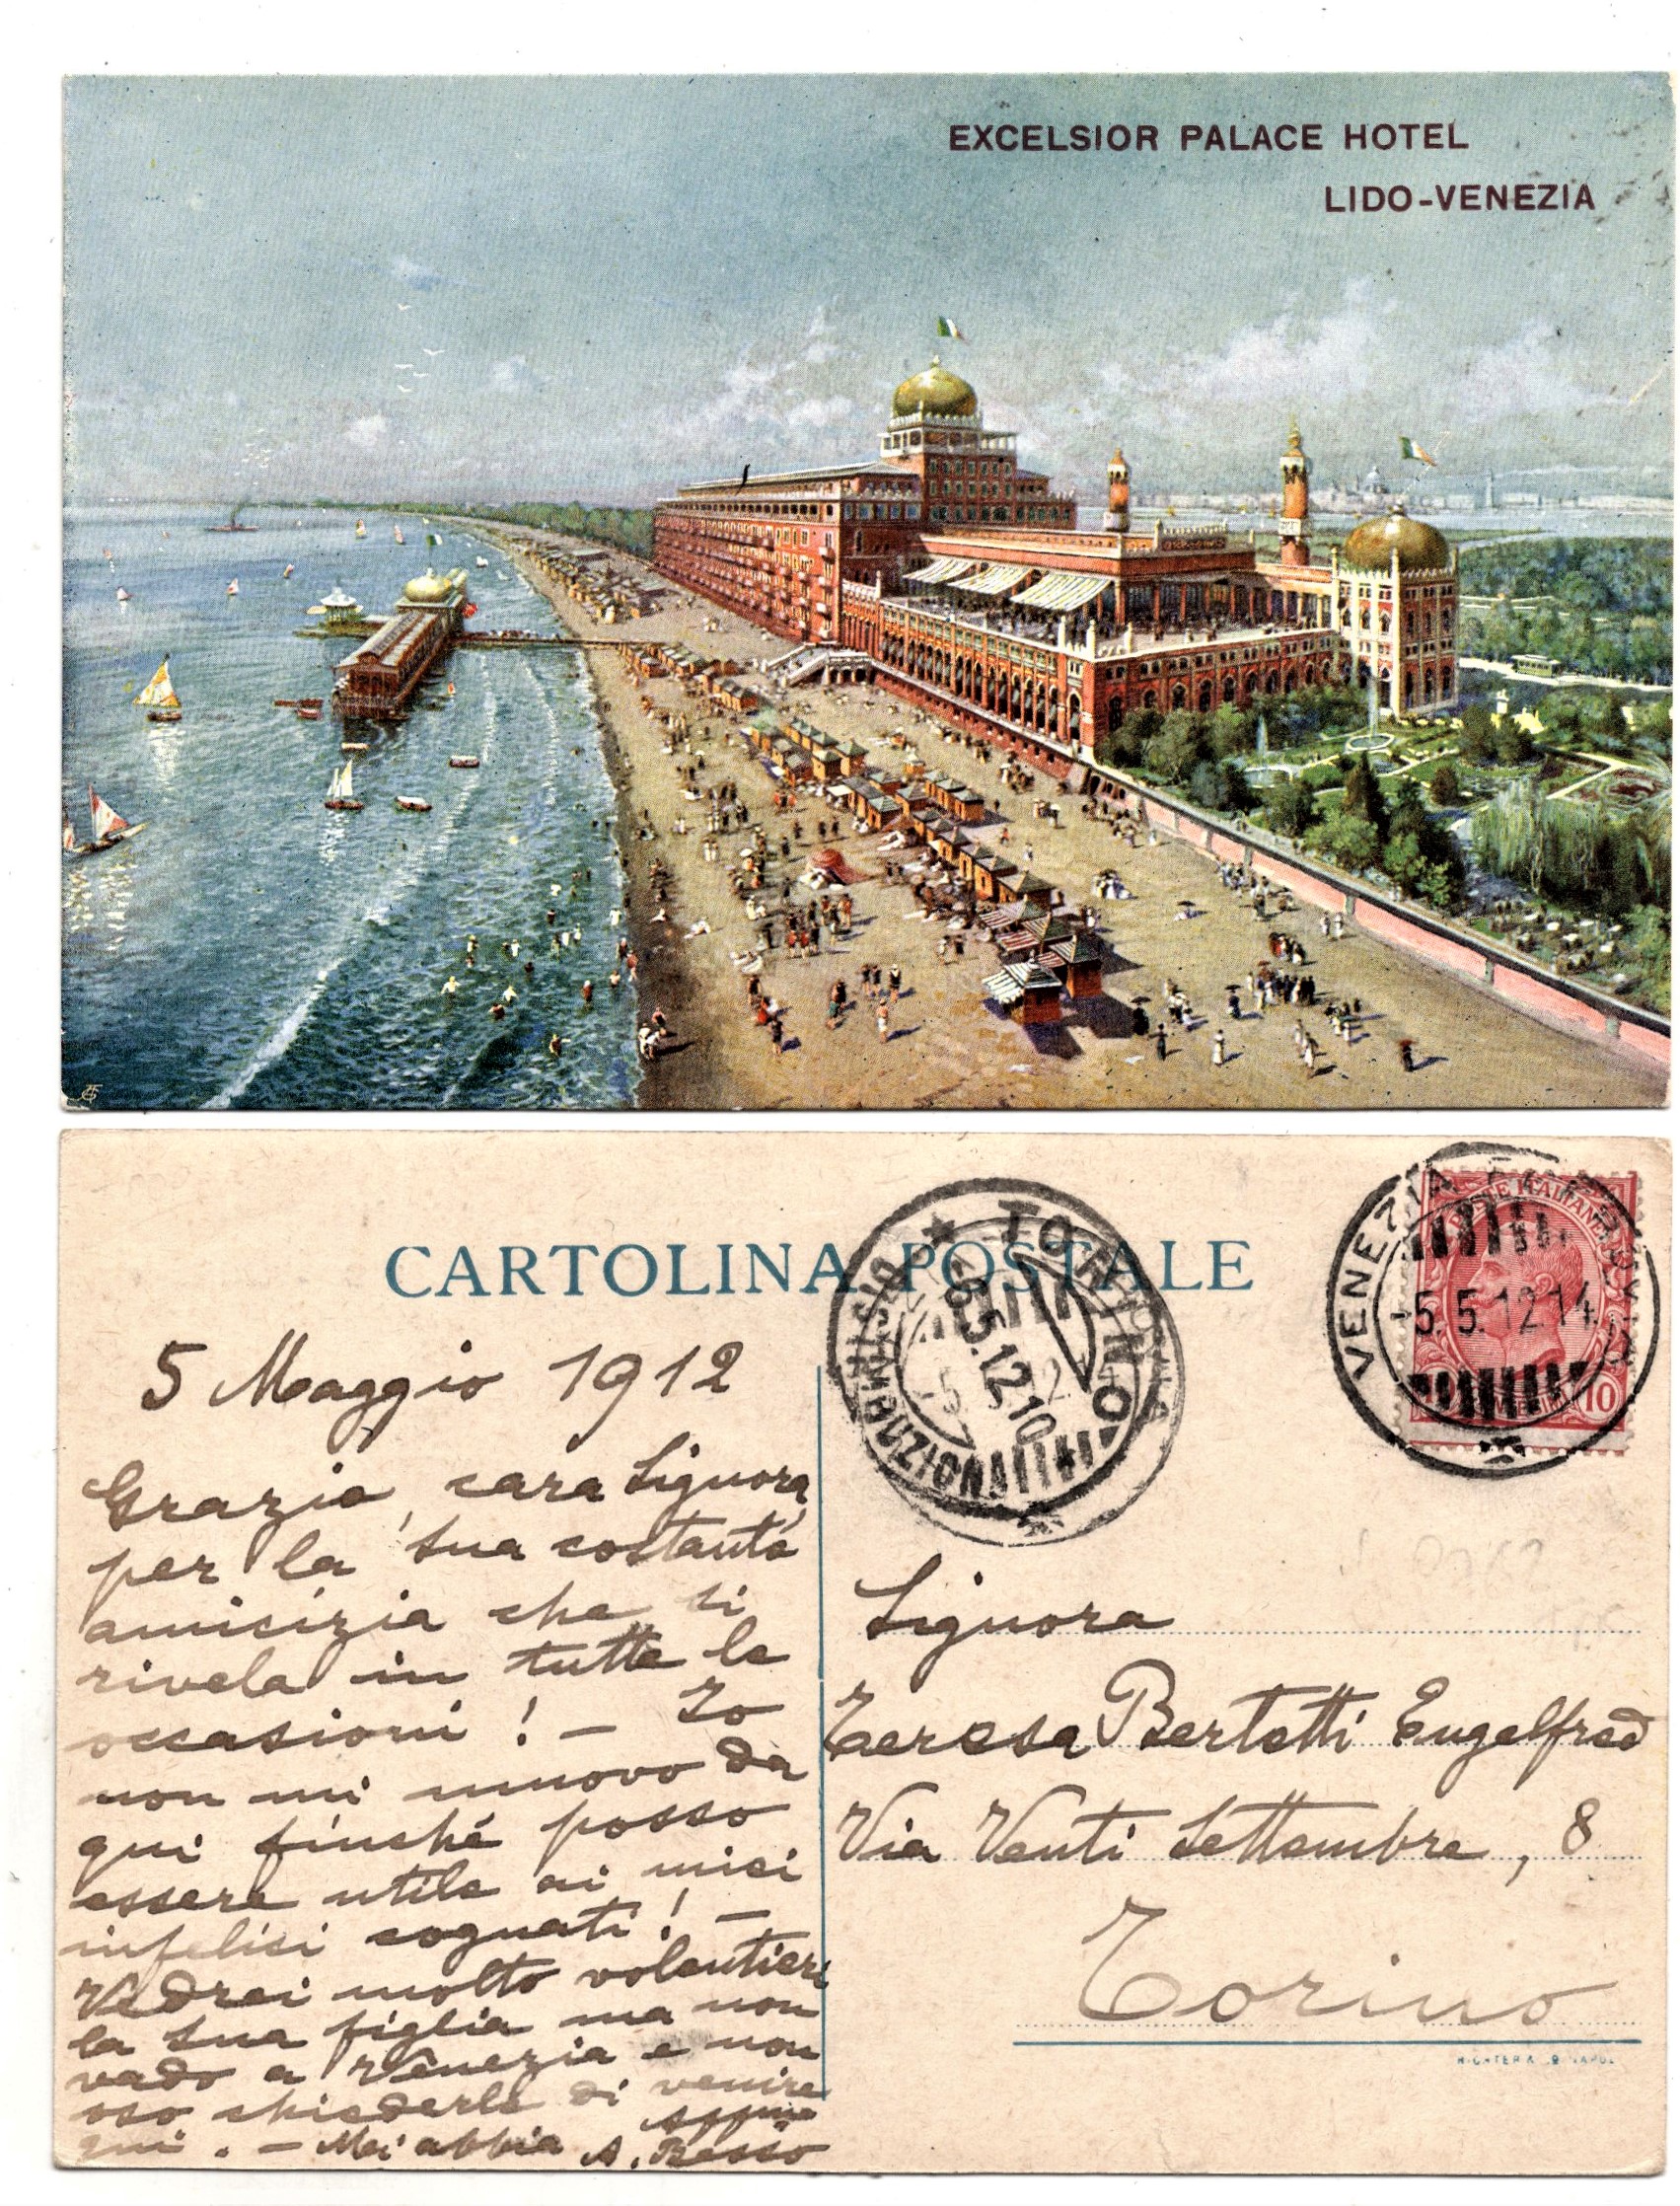 EXCELSIOR PALACE HOTEL
LIDO-VENEZIA
CARTOLINA POSTALE
TORINO
DISTRIBUZIONI
6.5.12.10
VENEZIA FERROVIA
-5.5.12.14
POSTE ITALIANE
10
5 Maggio 1912
Grazie, cara Signora,
per la sua costante
amicizia che si
rivela in tutte le
occasioni! - Io
non mi muovo da
qui finché posso
essere utile ai miei
infelici cognati! -
Vedrei molto volentieri
la sua figlia ma non
vado a Venezia e non
oso chiederle di venire
qui. - Mi abbia
A. Basso
Signora
Teresa Bertetti Engelfred
Via Venti Settembre, 8
Torino
RICHTER & C. NAPOLI